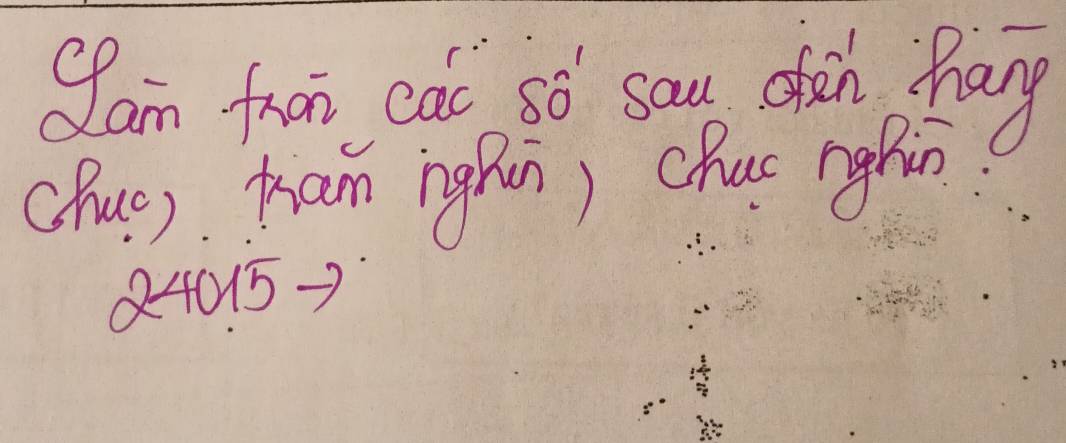 Làm tròn các số sau đến hàng
chục, trăm nghìn, chục nghìn.
24015 →